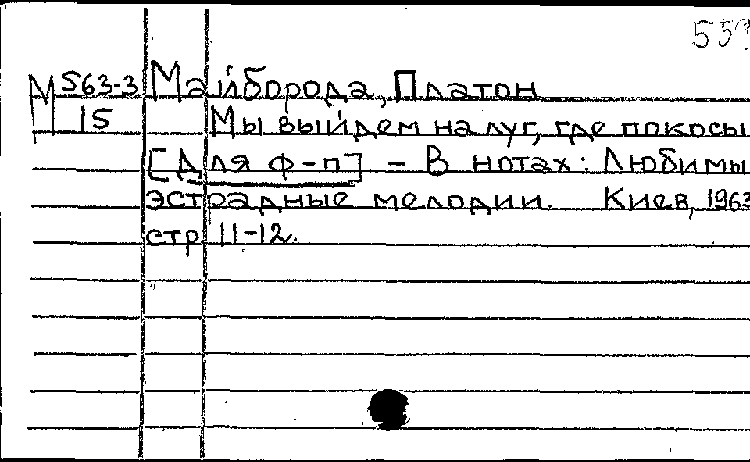 559
М 563-3 Майборода, Платон
15 Мы выйдем на луг, где покосы
[Для ф-п] - В нотах: Любимы
эстрадные мелодии. Киев, 1963
стр 11-12.